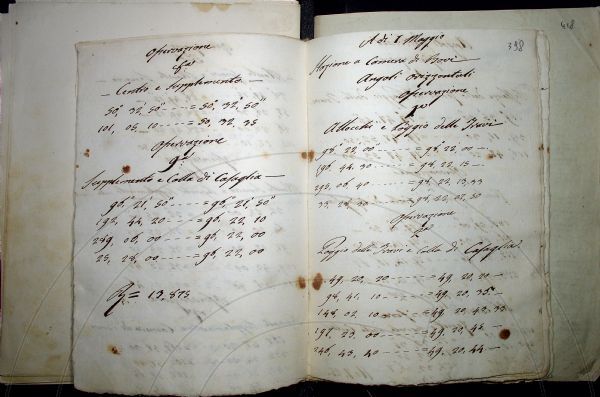 Osservazione
8ª
Centro e Supplemento
50°, 32', 50" ---- = 50°, 32', 50"
101, 05, 10 ---- = 50, 32, 35
Osservazione
9ª
Supplemento e Colla di Casaglia
96°, 21', 50" ---- = 96°, 21', 50"
192, 44, 20 ---- = 96, 22, 10
289, 06, 00 ---- = 96, 22, 00
25, 28, 00 ---- = 96, 22, 00
= 13,575
398
418
A dì 1 Maggio
Stazione a Camera di Bovi
Angoli orizzontali
Osservazione
1ª
Allocchi e Poggio delle Travi
98°, 22, 00 ---- = 98, 22, 00
196, 44, 30 ---- = 98, 22, 15
295, 06, 40 ---- = 98, 22, 13, 33
33, 28, 30 ---- = 98, 22, 07, 50
Osservazione
2ª
Poggio delle Travi e Colla di Casaglia
49, 20, 20 ---- = 49, 20, 20
98, 41, 10 ---- = 49, 20, 35
148, 02, 10 ---- = 49, 20, 43, 33
197, 23, 00 ---- = 49, 20, 45
246, 43, 40 ---- = 49, 20, 44